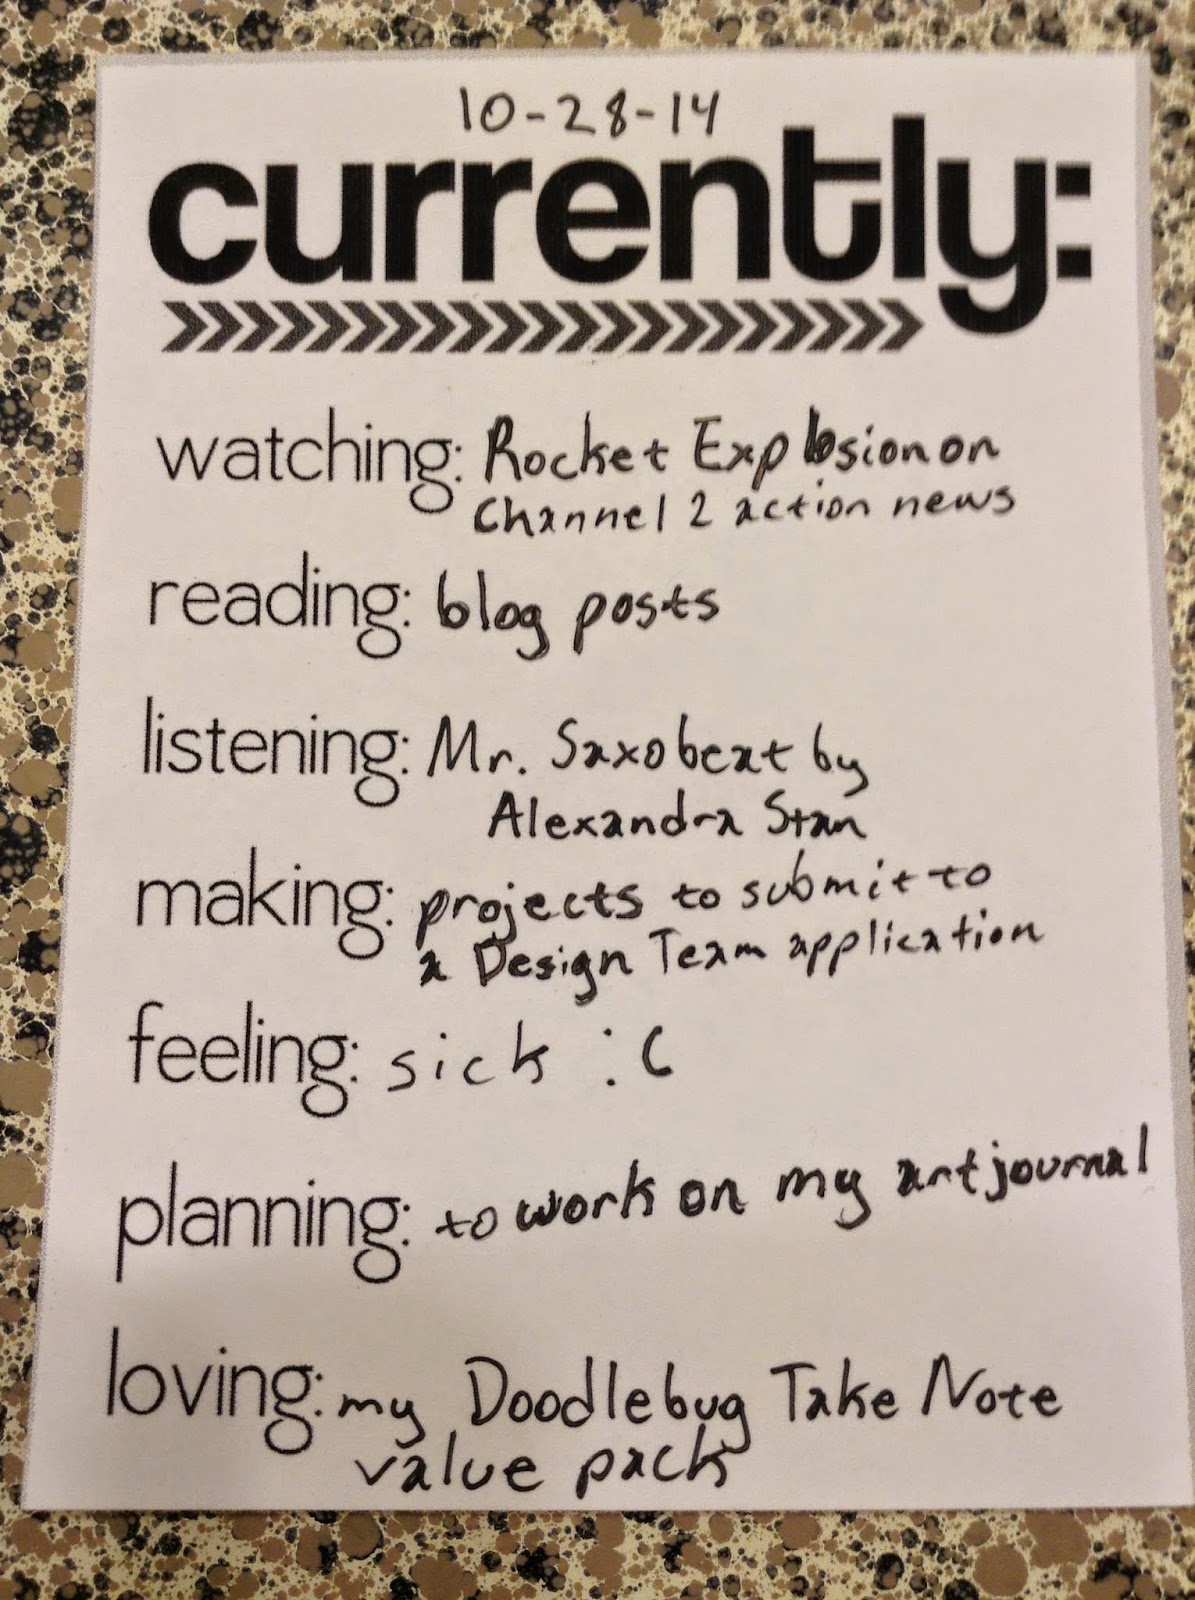 10-28-14
currently:
watching: Rocket Explosion on
Channel 2 action news
reading: blog posts
listening: Mr. Saxobeat by
Alexandra Stan
making: projects to submit to
a Design Team application
feeling: sick :(
planning: to work on my art journal
loving: my Doodlebug Take Note
value pack